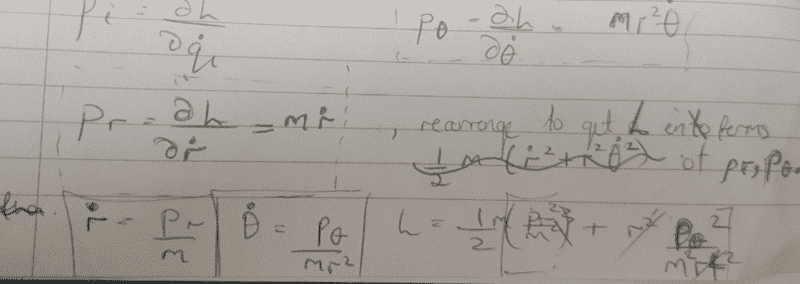 Pi = ∂L/∂q̇i   Pθ = ∂L/∂θ̇ = mr²θ̇
Pr = ∂L/∂ṙ = mṙ , rearrange to get L into terms
1/2 m (ṙ² + r²θ̇²) of pr, pθ.
ṙ = Pr/m   θ̇ = Pθ/mr²   L = 1/2 m [(Pr²/m²) + r² Pθ²/m²r⁴]